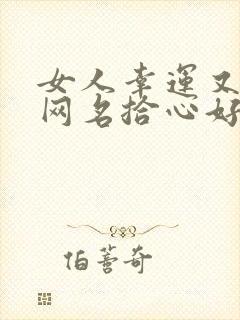 女人幸運又
网名拾心好
伯薏奇